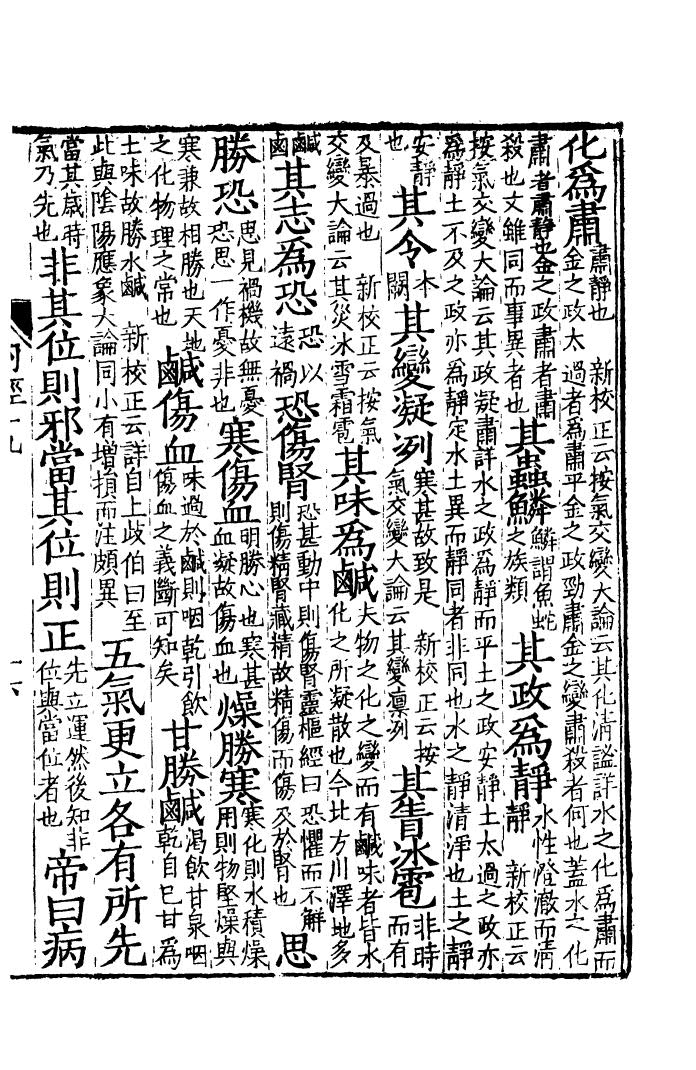 化爲肅肅靜也　新校正云按氣交變大論云其化清謐詳水之化爲肅而金之政太過者爲肅平金之政勁肅金之變肅殺者何也蓋水之化
肅者肅靜也金之政肅者肅殺也文雖同而事異者也其蟲鱗鱗謂魚蛇之族類其政爲靜水性澄澈而清靜　新校正云
按氣交變大論云其政凝肅詳水之政爲靜而平土之政安靜土太過之政亦爲靜土不及之政亦爲靜定水土異而靜同者非同也水之靜清淨也土之靜
安靜也其令本闕其變凝冽寒甚故致是　新校正云按氣交變大論云其變凛冽其眚冰雹非時而有
及暴過也　新校正云按氣交變大論云其災冰雪霜雹其味爲鹹夫物之化之變而有鹹味者皆水化之所凝散也今比方川澤地多
鹹鹵其志爲恐恐以遠禍恐傷腎恐甚動中則傷腎靈樞經曰恐懼而不解則傷精腎藏精故精傷而傷及於腎也思
勝恐思見禍機故無憂恐思一作憂非也寒傷血明勝心也寒甚血凝故傷血也燥勝寒寒化則水積燥用則物堅燥與
寒兼故相勝也天地之化物理之常也鹹傷血味過於鹹則咽乾引飲傷血之義斷可知矣甘勝鹹渴飲甘泉咽乾自已甘爲
土味故勝水鹹　新校正云詳自上歧伯曰至此與陰陽應象大論同小有增損而注頗異五氣更立各有所先
當其歲時氣乃先也非其位則邪當其位則正先立運然後知非位與當位者也帝曰病